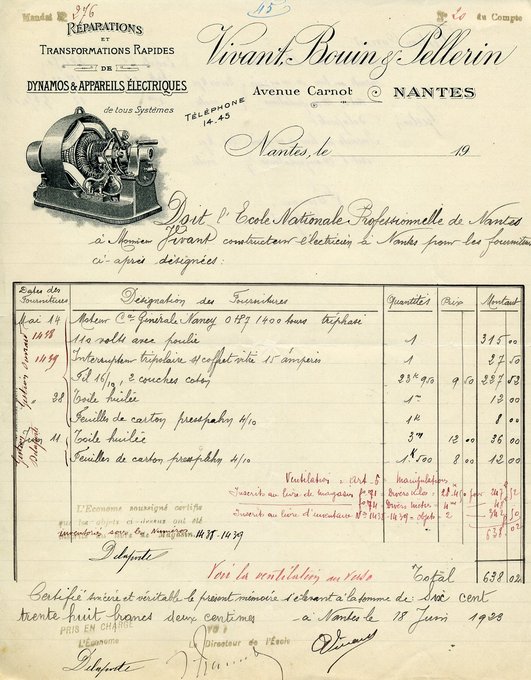 Mandat N° 276
45
N° 20 du Compte
RÉPARATIONS
ET
TRANSFORMATIONS RAPIDES
DE
DYNAMOS & APPAREILS ÉLECTRIQUES
de tous Systèmes
TÉLÉPHONE
14-45
Vivant, Bouin & Pellerin
Avenue Carnot NANTES
Nantes, le 19
Doit l'Ecole Nationale Professionnelle de Nantes
à Monsieur Vivant constructeur électricien à Nantes pour les fournitures
ci-après désignées:
Dates des Fournitures Désignation des Fournitures Quantités Prix Montant
Mai 14 Moteur Cie Générale Nancy 0 HP7 1400 tours triphasé
1438 110 volts avec poulie 1 315 00
1439 Interrupteur tripolaire s/ coffret vitré 15 ampères 1 27 50
Fil 16/10, 2 couches coton 23k950 9 50 227 52
" 28 Toile huilée 1m 12 00
Feuilles de carton presspahn 4/10 1k 8 00
Juin 11 Toile huilée 3m 12 00 36 00
Feuilles de carton presspahn 4/10 1k500 8 00 12 00
Ventilation = Art. 5 Manipulations
Inscrit au livre de magasin
Inscrit au livre d'inventaire Nos 1438-1439 - objets 2 342 50
638 02
L'Économe soussigné certifie
que les objets ci-dessus ont été
inventorié sous les Numéros 1438-1439
Delaporte
Voir la ventilation au verso
Total 638 02
Certifié sincère et véritable le présent mémoire s'élevant à la somme de: Six cent
trente huit francs deux centimes - à Nantes le 18 Juin 1923
PRIS EN CHARGE
L'Économe
Delaporte
VU
Le Directeur de l'École
Vivant